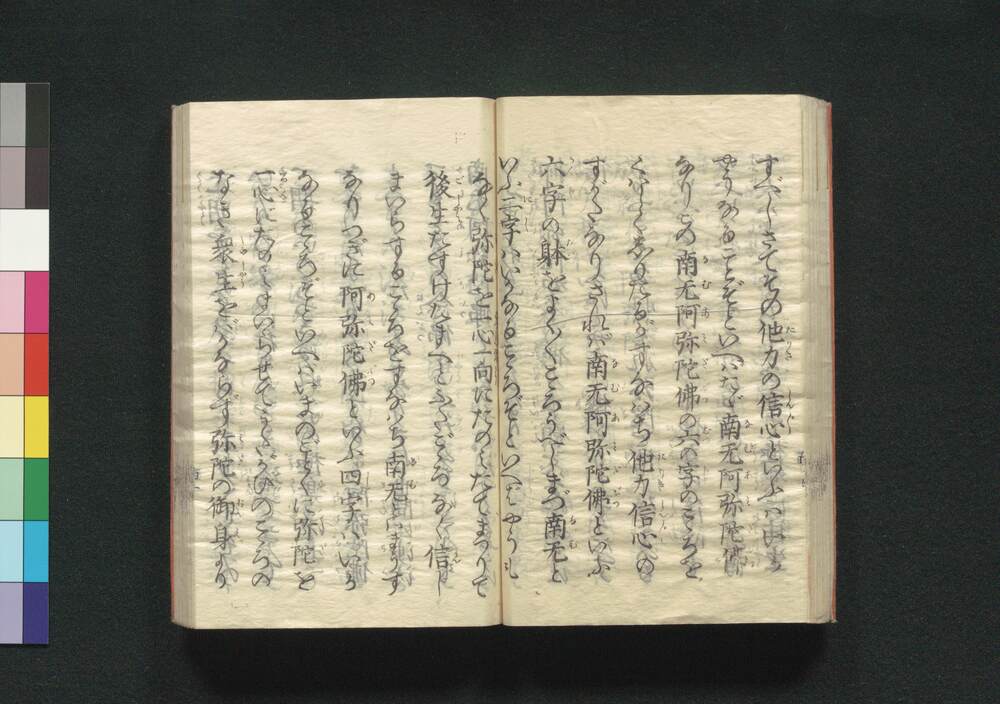 すべしさてその他力の信心といふはいか
やうなることぞといへばたゞ南无阿弥陀佛
なりこの南无阿弥陀佛の六の字のこゝろを
くはしくしりたるがすなはち他力信心の
すがたなりされば南无阿弥陀佛といふ
六字の躰をよく〱こゝろうべしまづ南无と
いふ二字はいかなるこゝろぞといへばやうも
なく弥陀を一心一向にたのみたてまつりて
後生たすけたまへとふたごゝろなく信じ
まいらするこゝろをすなはち南无とはまうす
なりつぎに阿弥陀佛といふ四字はいか
なるこゝろぞといへばいまのごとくに弥陀を
一心にたのみまいらせてうたがひのこゝろの
なき衆生をばかならず弥陀の御身より